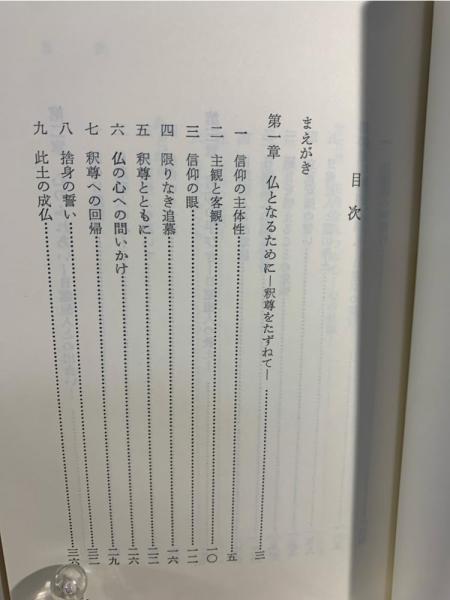 目次
まえがき
第一章 仏となるために―釈尊をたずねて―……三
一 信仰の主体性……五
二 主観と客観……一〇
三 信仰の眼……一二
四 限りなき追慕……一六
五 釈尊とともに……二二
六 仏の心への問いかけ……二六
七 釈尊への回帰……二九
八 捨身の誓い……三二
九 此土の成仏……三六